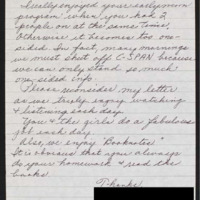 I really enjoyed your early morn
program when you had 2
people on at the same time;
Otherwise it becomes too one-
sided. In fact, many mornings
we must shut off C-SPAN because
we can only stand so much
one-sided info.
Please reconsider my letter
as we truly enjoy watching
& listening each day.
You & the girls do a fabulous
job each day.
Also, we enjoy "Booknotes"
It is obvious that you always
do your homework & read the
books.
Thanks